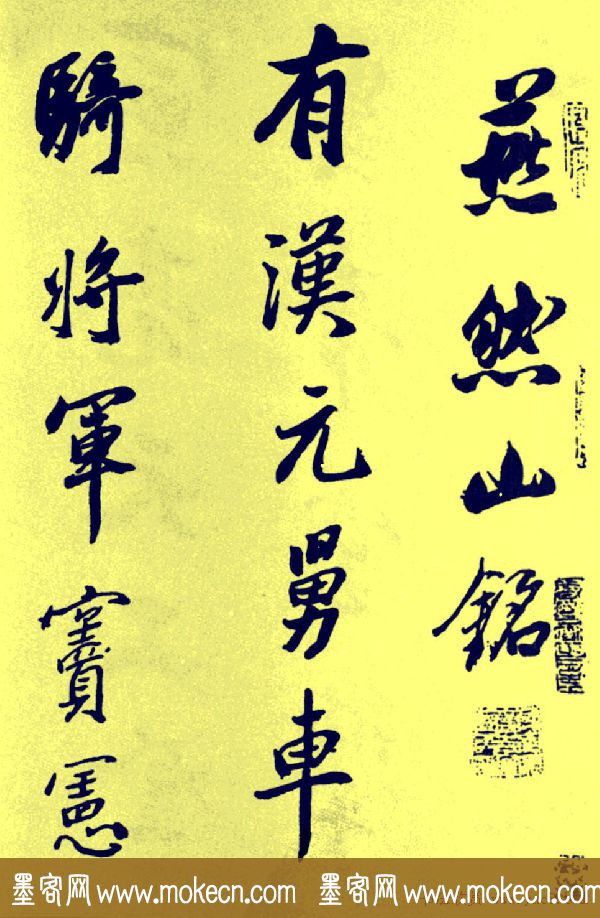 燕然山銘
有漢元舅車
騎將軍竇憲
墨客网 www.mokecn.com 墨客网 www.mokecn.com